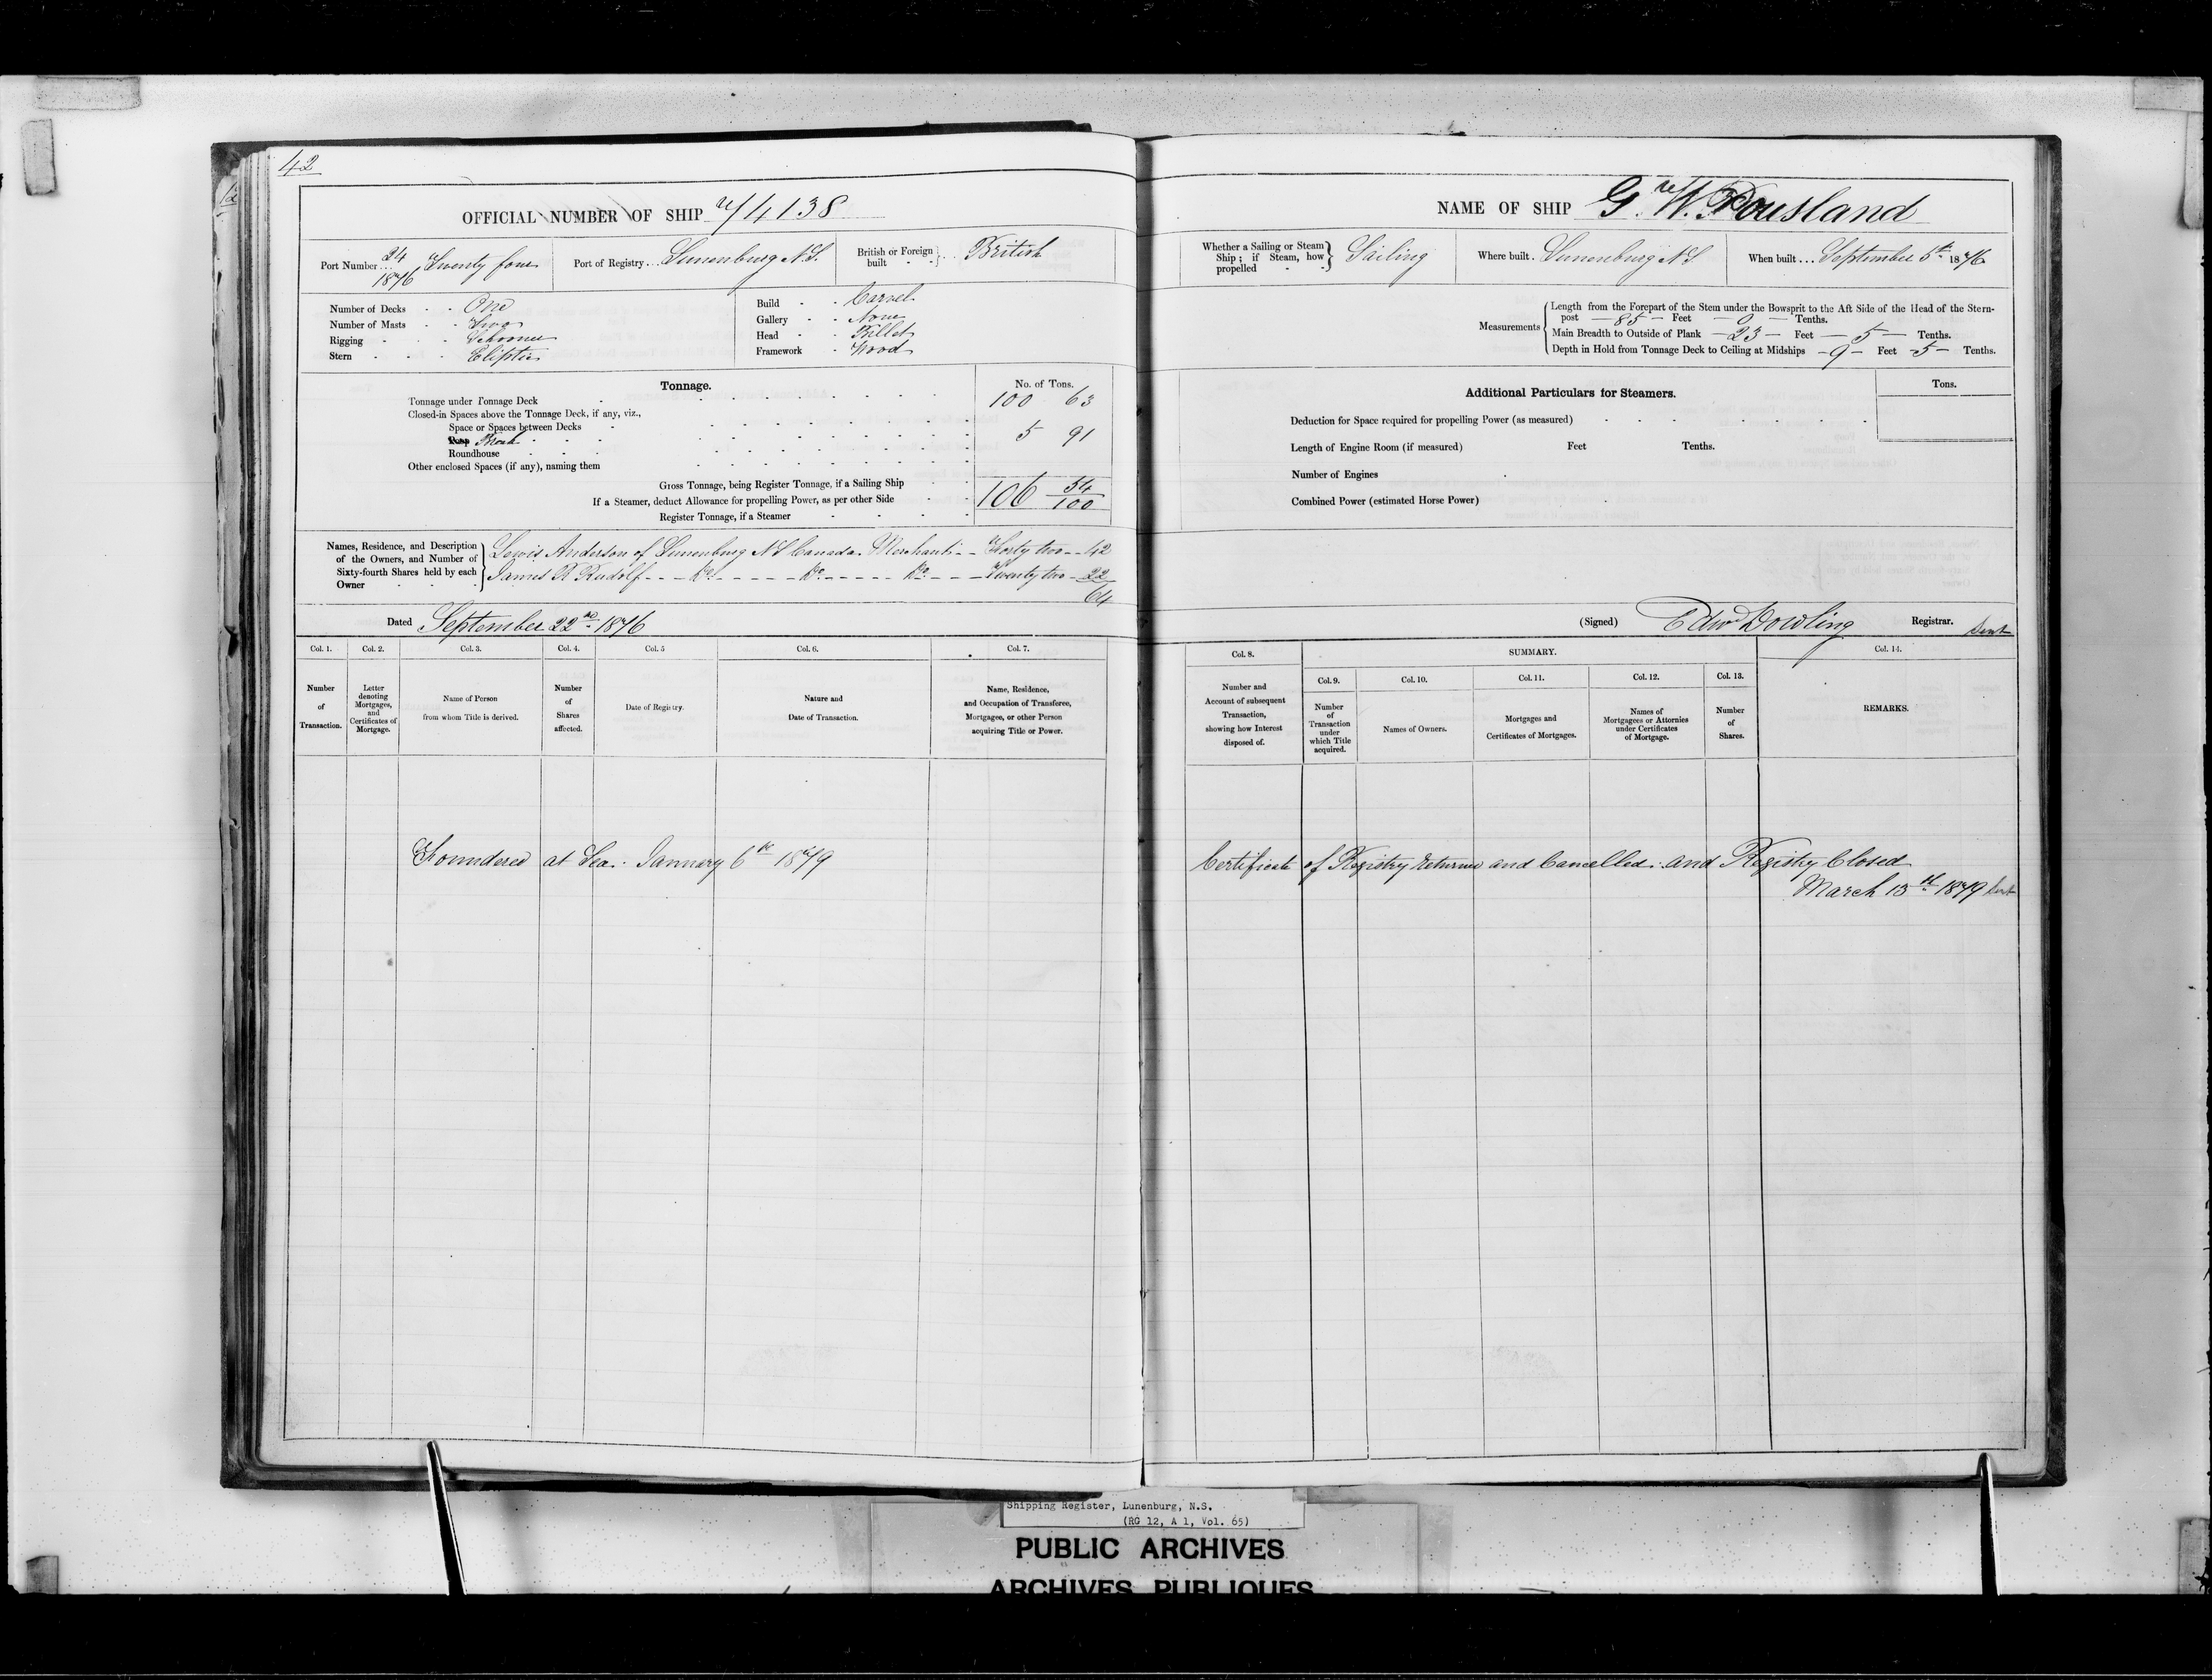 42
OFFICIAL NUMBER OF SHIP 74138
Port Number 24 1876 Twenty four Port of Registry Lunenburg N.S. British or Foreign built British
Number of Decks One
Number of Masts Two
Rigging Schooner
Stern Eliptic
Build Carvel
Gallery None
Head Billet
Framework Wood
Tonnage. No. of Tons.
Tonnage under Tonnage Deck 100 63
Closed-in Spaces above the Tonnage Deck, if any, viz.,
Space or Spaces between Decks
Poop Break 5 91
Roundhouse
Other enclosed Spaces (if any), naming them
Gross Tonnage, being Register Tonnage, if a Sailing Ship 106 54/100
If a Steamer, deduct Allowance for propelling Power, as per other Side
Register Tonnage, if a Steamer
Names, Residence, and Description of the Owners, and Number of Sixty-fourth Shares held by each Owner
Lewis Anderson of Lunenburg N.S Canada Merchant Forty two 42
James R Rudolf Do Do Do Twenty two 22
64
Dated September 22nd 1876
Col. 1. Number of Transaction.
Col. 2. Letter denoting Mortgages, and Certificates of Mortgage.
Col. 3. Name of Person from whom Title is derived.
Col. 4. Number of Shares affected.
Col. 5 Date of Registry.
Col. 6. Nature and Date of Transaction.
Col. 7. Name, Residence, and Occupation of Transferee, Mortgagee, or other Person acquiring Title or Power.
Foundered at Sea. January 6th 1879
NAME OF SHIP G. W. Pousland
Whether a Sailing or Steam Ship; if Steam, how propelled Sailing Where built Lunenburg N.S When built September 5th 1876
Measurements
Length from the Forepart of the Stem under the Bowsprit to the Aft Side of the Head of the Stern-
post 85 Feet 9 Tenths.
Main Breadth to Outside of Plank 23 Feet 5 Tenths.
Depth in Hold from Tonnage Deck to Ceiling at Midships 9 Feet 5 Tenths.
Additional Particulars for Steamers. Tons.
Deduction for Space required for propelling Power (as measured)
Length of Engine Room (if measured) Feet Tenths.
Number of Engines
Combined Power (estimated Horse Power)
(Signed) Edwd Dowling Registrar. Sent
Col. 8. Number and Account of subsequent Transaction, showing how Interest disposed of.
SUMMARY.
Col. 9. Number of Transaction under which Title acquired.
Col. 10. Names of Owners.
Col. 11. Mortgages and Certificates of Mortgages.
Col. 12. Names of Mortgagees or Attornies under Certificates of Mortgage.
Col. 13. Number of Shares.
Col. 14. REMARKS.
Certificate of Registry returned and Cancelled. and Registry Closed
March 13th 1879 Sent
Shipping Register, Lunenburg, N.S.
(RG 12, A 1, Vol. 65)
PUBLIC ARCHIVES
ARCHIVES PUBLIQUES